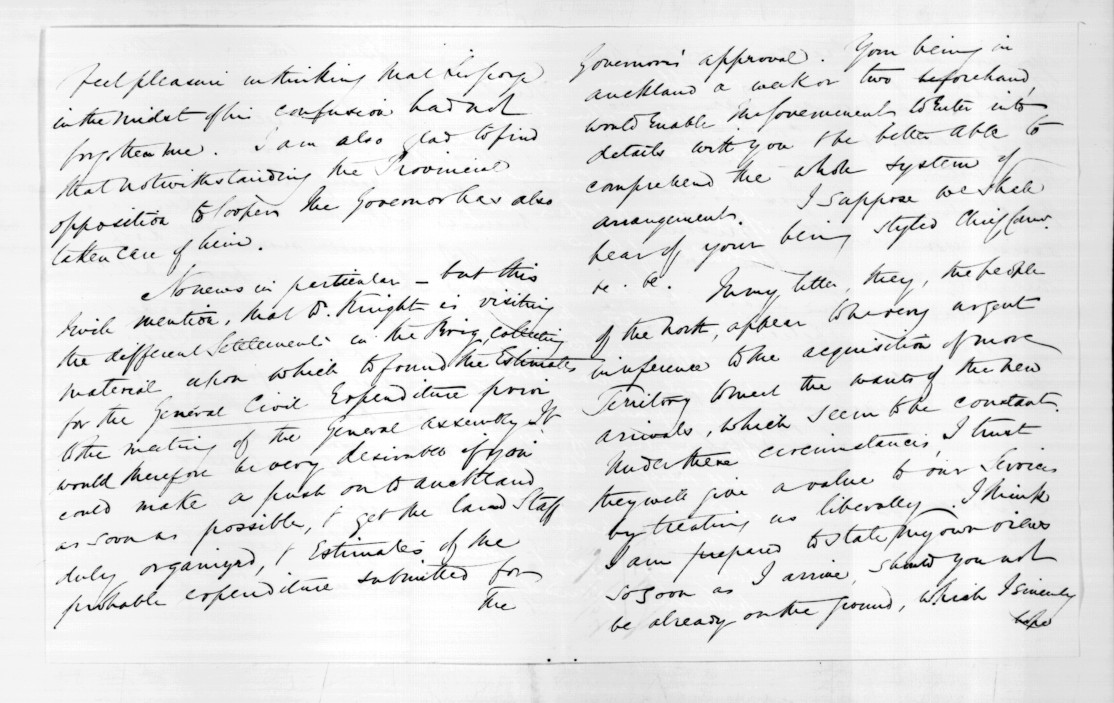 feel pleasure in thinking that Sir George
in the midst of his confusion had not
forgotten me. I am also glad to find
that notwithstanding the Provincial
opposition to Cooper, the Governor has also
taken care of him.
No news in particular – but this
I will mention, that Dr. Knight is visiting
the different Settlements in the Brig, collecting
material upon which to found the Estimates
for the General Civil Expenditure prior
to the meeting of the General Assembly. It
would therefore be very desirable if you
could make a push on to Auckland
as soon as possible, & get the Land Staff
duly organized, & Estimates of the
probable expenditure submitted for
the
Governor's approval. Your being in
Auckland a week or two beforehand,
would enable the Government to enter into
details with you & be better able to
comprehend the whole system of
arrangement. I suppose we shall
hear of your being styled Chief Comr.
&c. &c. In my letter, they, the people
of the North, appear to be very urgent
in reference to the acquisition of more
Territory to meet the wants of the new
arrivals, which seem to be constant.
Under these circumstances, I trust
they will give a value to our Services
by treating us liberally. I think
I am prepared to state my own views
so soon as I arrive, should you not
be already on the ground, which I sincerely
hope